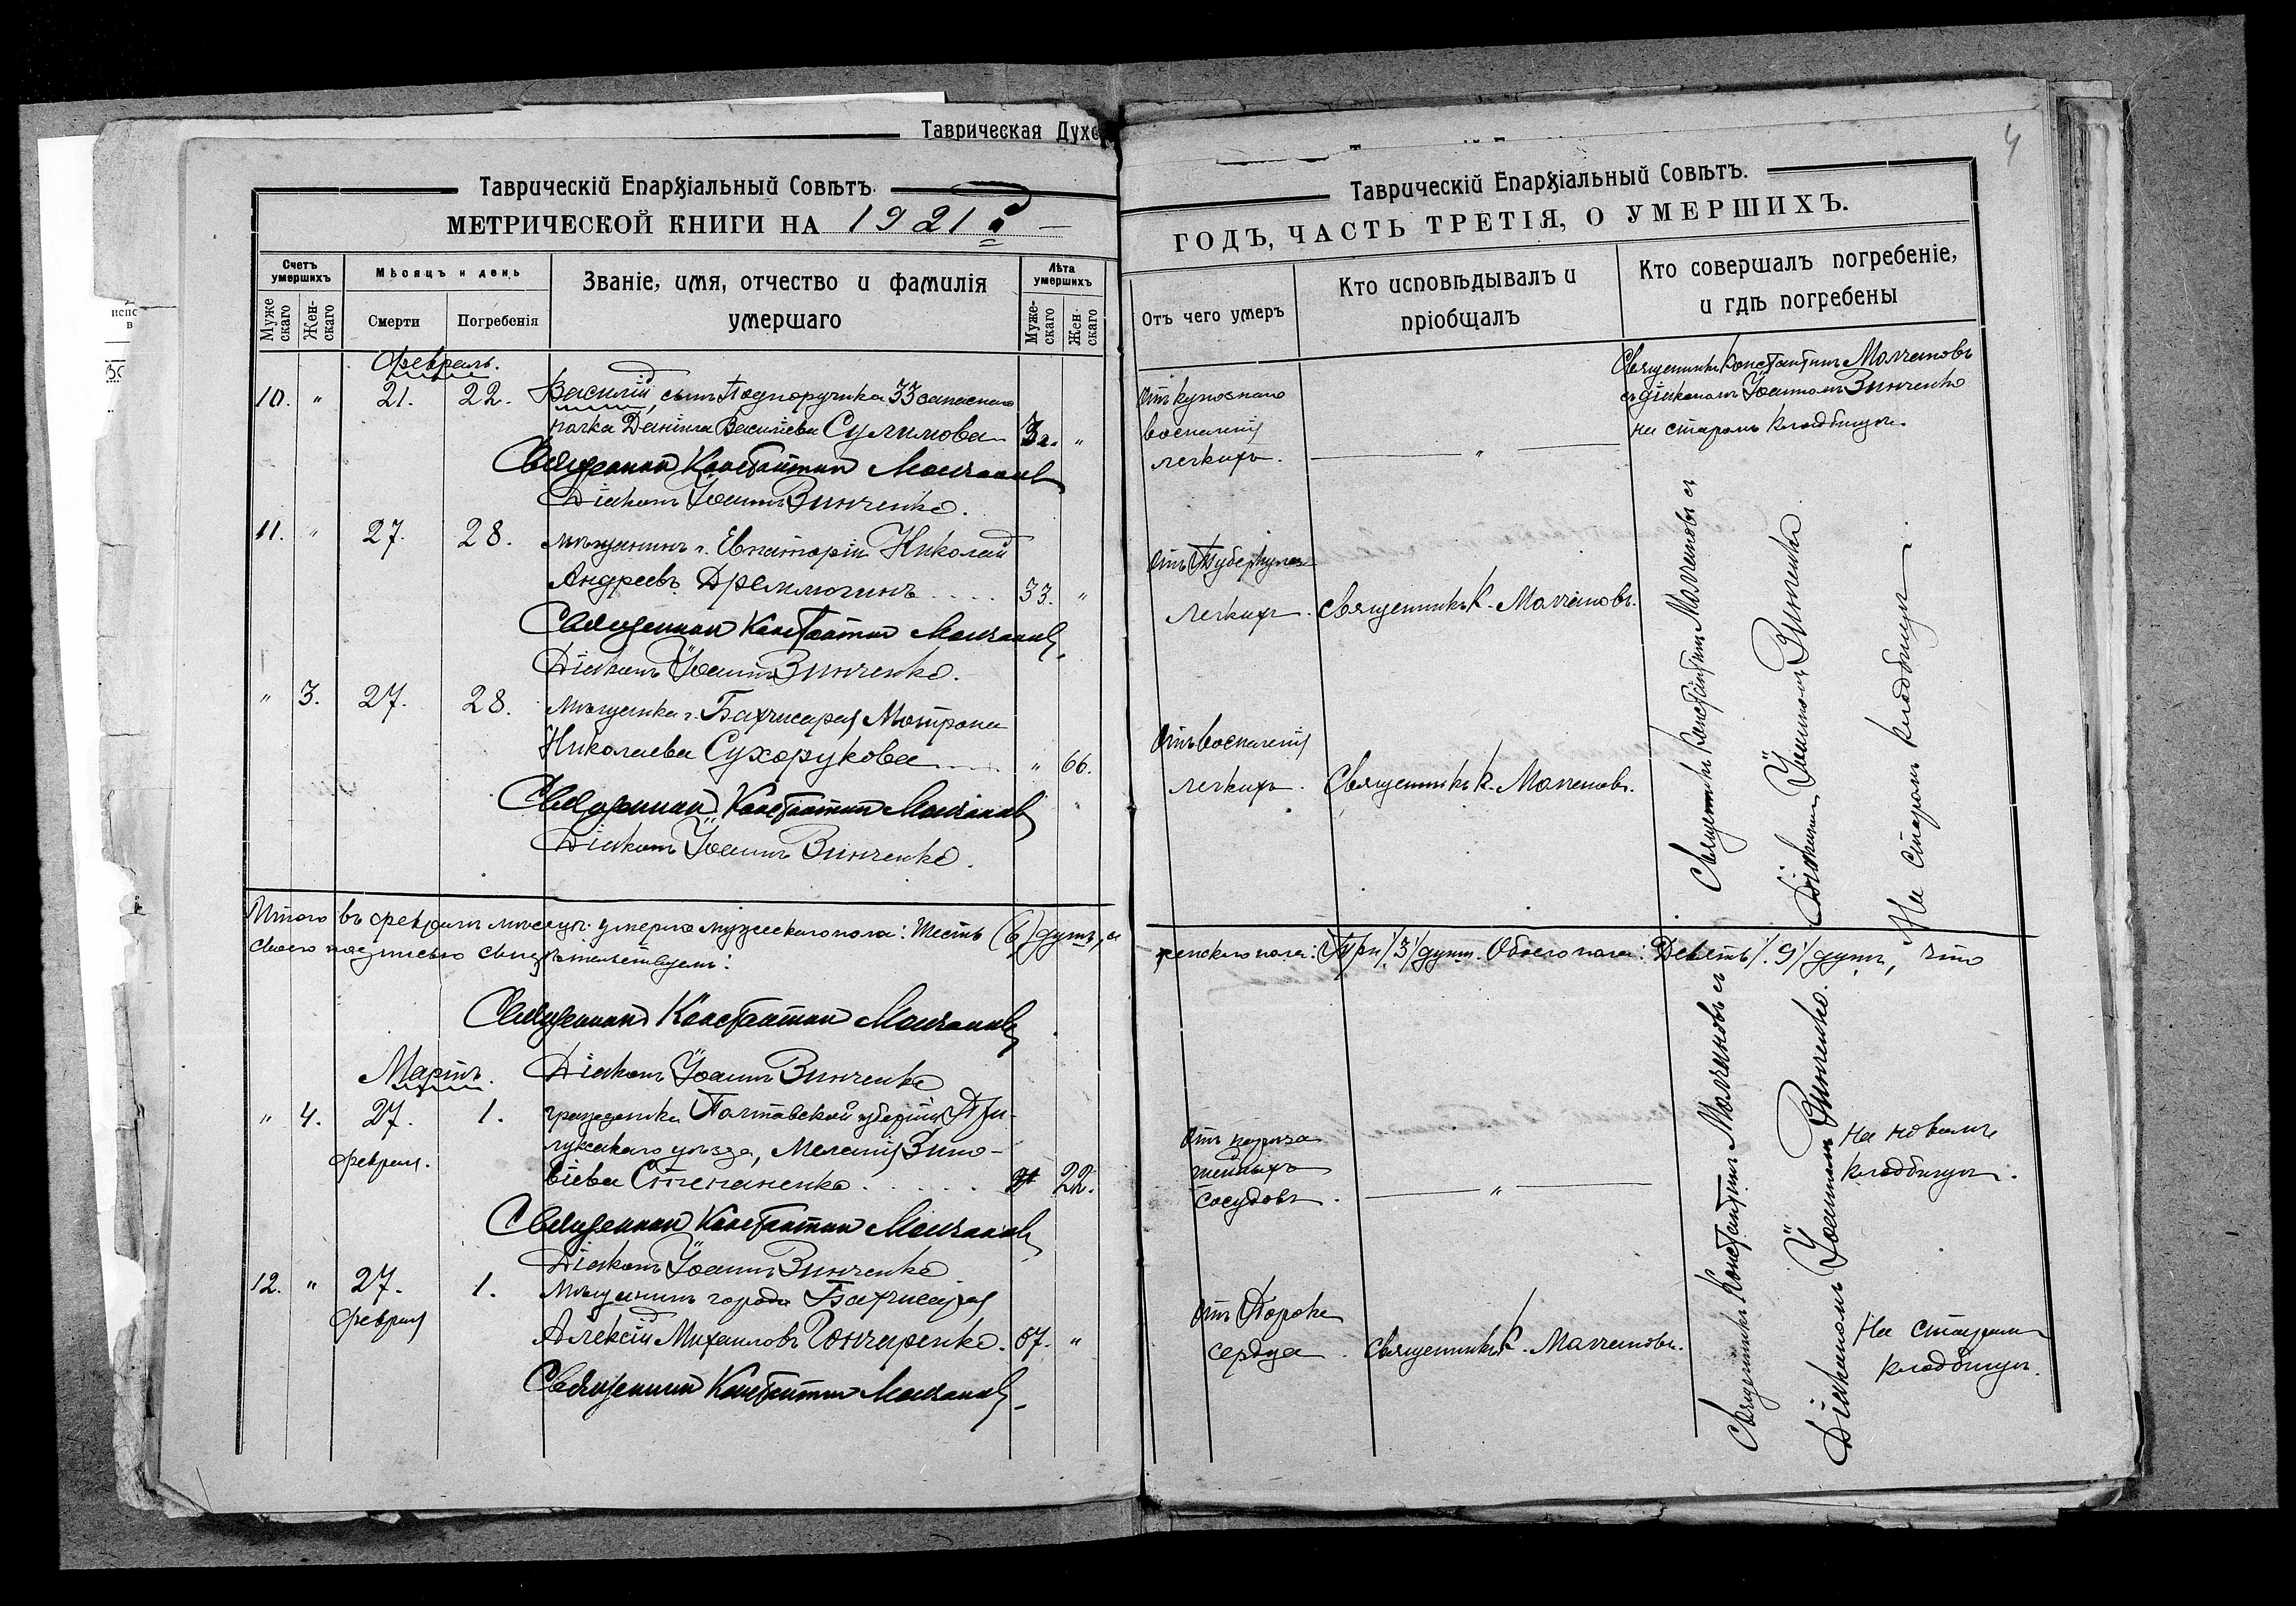 Таврическая Духо
Таврическій Епархіальный Совѣтъ.
МЕТРИЧЕСКОЙ КНИГИ НА 1921 г.
Счетъ умершихъ
Мѣсяцъ и день
Званіе, имя, отчество и фамилія умершаго
Лѣта умершихъ
Мужескаго
Женскаго
Смерти
Погребенія
Мужескаго
Женскаго
Февраль.
10. " 21. 22. Василій, сынъ Подпоручика 33 запаснаго
полка Даніила Васильева Сулимова 3 г. "
Священникъ Константинъ Молчановъ
Діаконъ Іоаннъ Зинченко.
11. " 27. 28. мѣщанинъ г. Евпаторіи Николай
Андреевъ Дремлюгинъ 33. "
Священникъ Константинъ Молчановъ
Діаконъ Іоаннъ Зинченко.
" 3. 27. 28. Мѣщанка г. Бахчисарая Мотрона
Николаева Сухорукова " 66.
Священникъ Константинъ Молчановъ
Діаконъ Іоаннъ Зинченко.
Итого въ февралѣ мѣсяцѣ умерло мужескаго пола: Шесть (6) душъ, а
своею подписью свидѣтельствуемъ:
Священникъ Константинъ Молчановъ
Мартъ. Діаконъ Іоаннъ Зинченко
" 4. 27. 1. гражданка Полтавской губерніи При-
февраля. лукскаго уѣзда, Меланія Зино-
віева Степаненко 22.
Священникъ Константинъ Молчановъ
Діаконъ Іоаннъ Зинченко
12. " 27. 1. Мѣщанинъ города Бахчисарая
февраля Алексій Михаиловъ Гончаренко. 67. "
Священникъ Константинъ Молчановъ
4
Таврическій Епархіальный Совѣтъ.
ГОДЪ, ЧАСТЬ ТРЕТІЯ, О УМЕРШИХЪ.
Отъ чего умеръ
Кто исповѣдывалъ и пріобщалъ
Кто совершалъ погребеніе, и гдѣ погребены
Отъ крупознаго
воспаленія
легкихъ. "
Священникъ Константинъ Молчановъ
съ діакономъ Іоанномъ Зинченко
на старомъ кладбищѣ.
Отъ Туберкулеза
легкихъ. Священникъ К. Молчановъ.
Отъ воспаленія
легкихъ. Священникъ К. Молчановъ.
Священникъ Константинъ Молчановъ съ
Діакономъ Іоанномъ Зинченко
На старомъ кладбищѣ.
женскаго пола: Три /3/ душъ. Обоего пола: Девять /9/ душъ, что
Отъ
сосудовъ. "
На новомъ
кладбищѣ.
Отъ Порока
сердца. Священникъ К. Молчановъ.
На старомъ
кладбищѣ.
Священникъ Константинъ Молчановъ съ
Діакономъ Іоанномъ Зинченко.